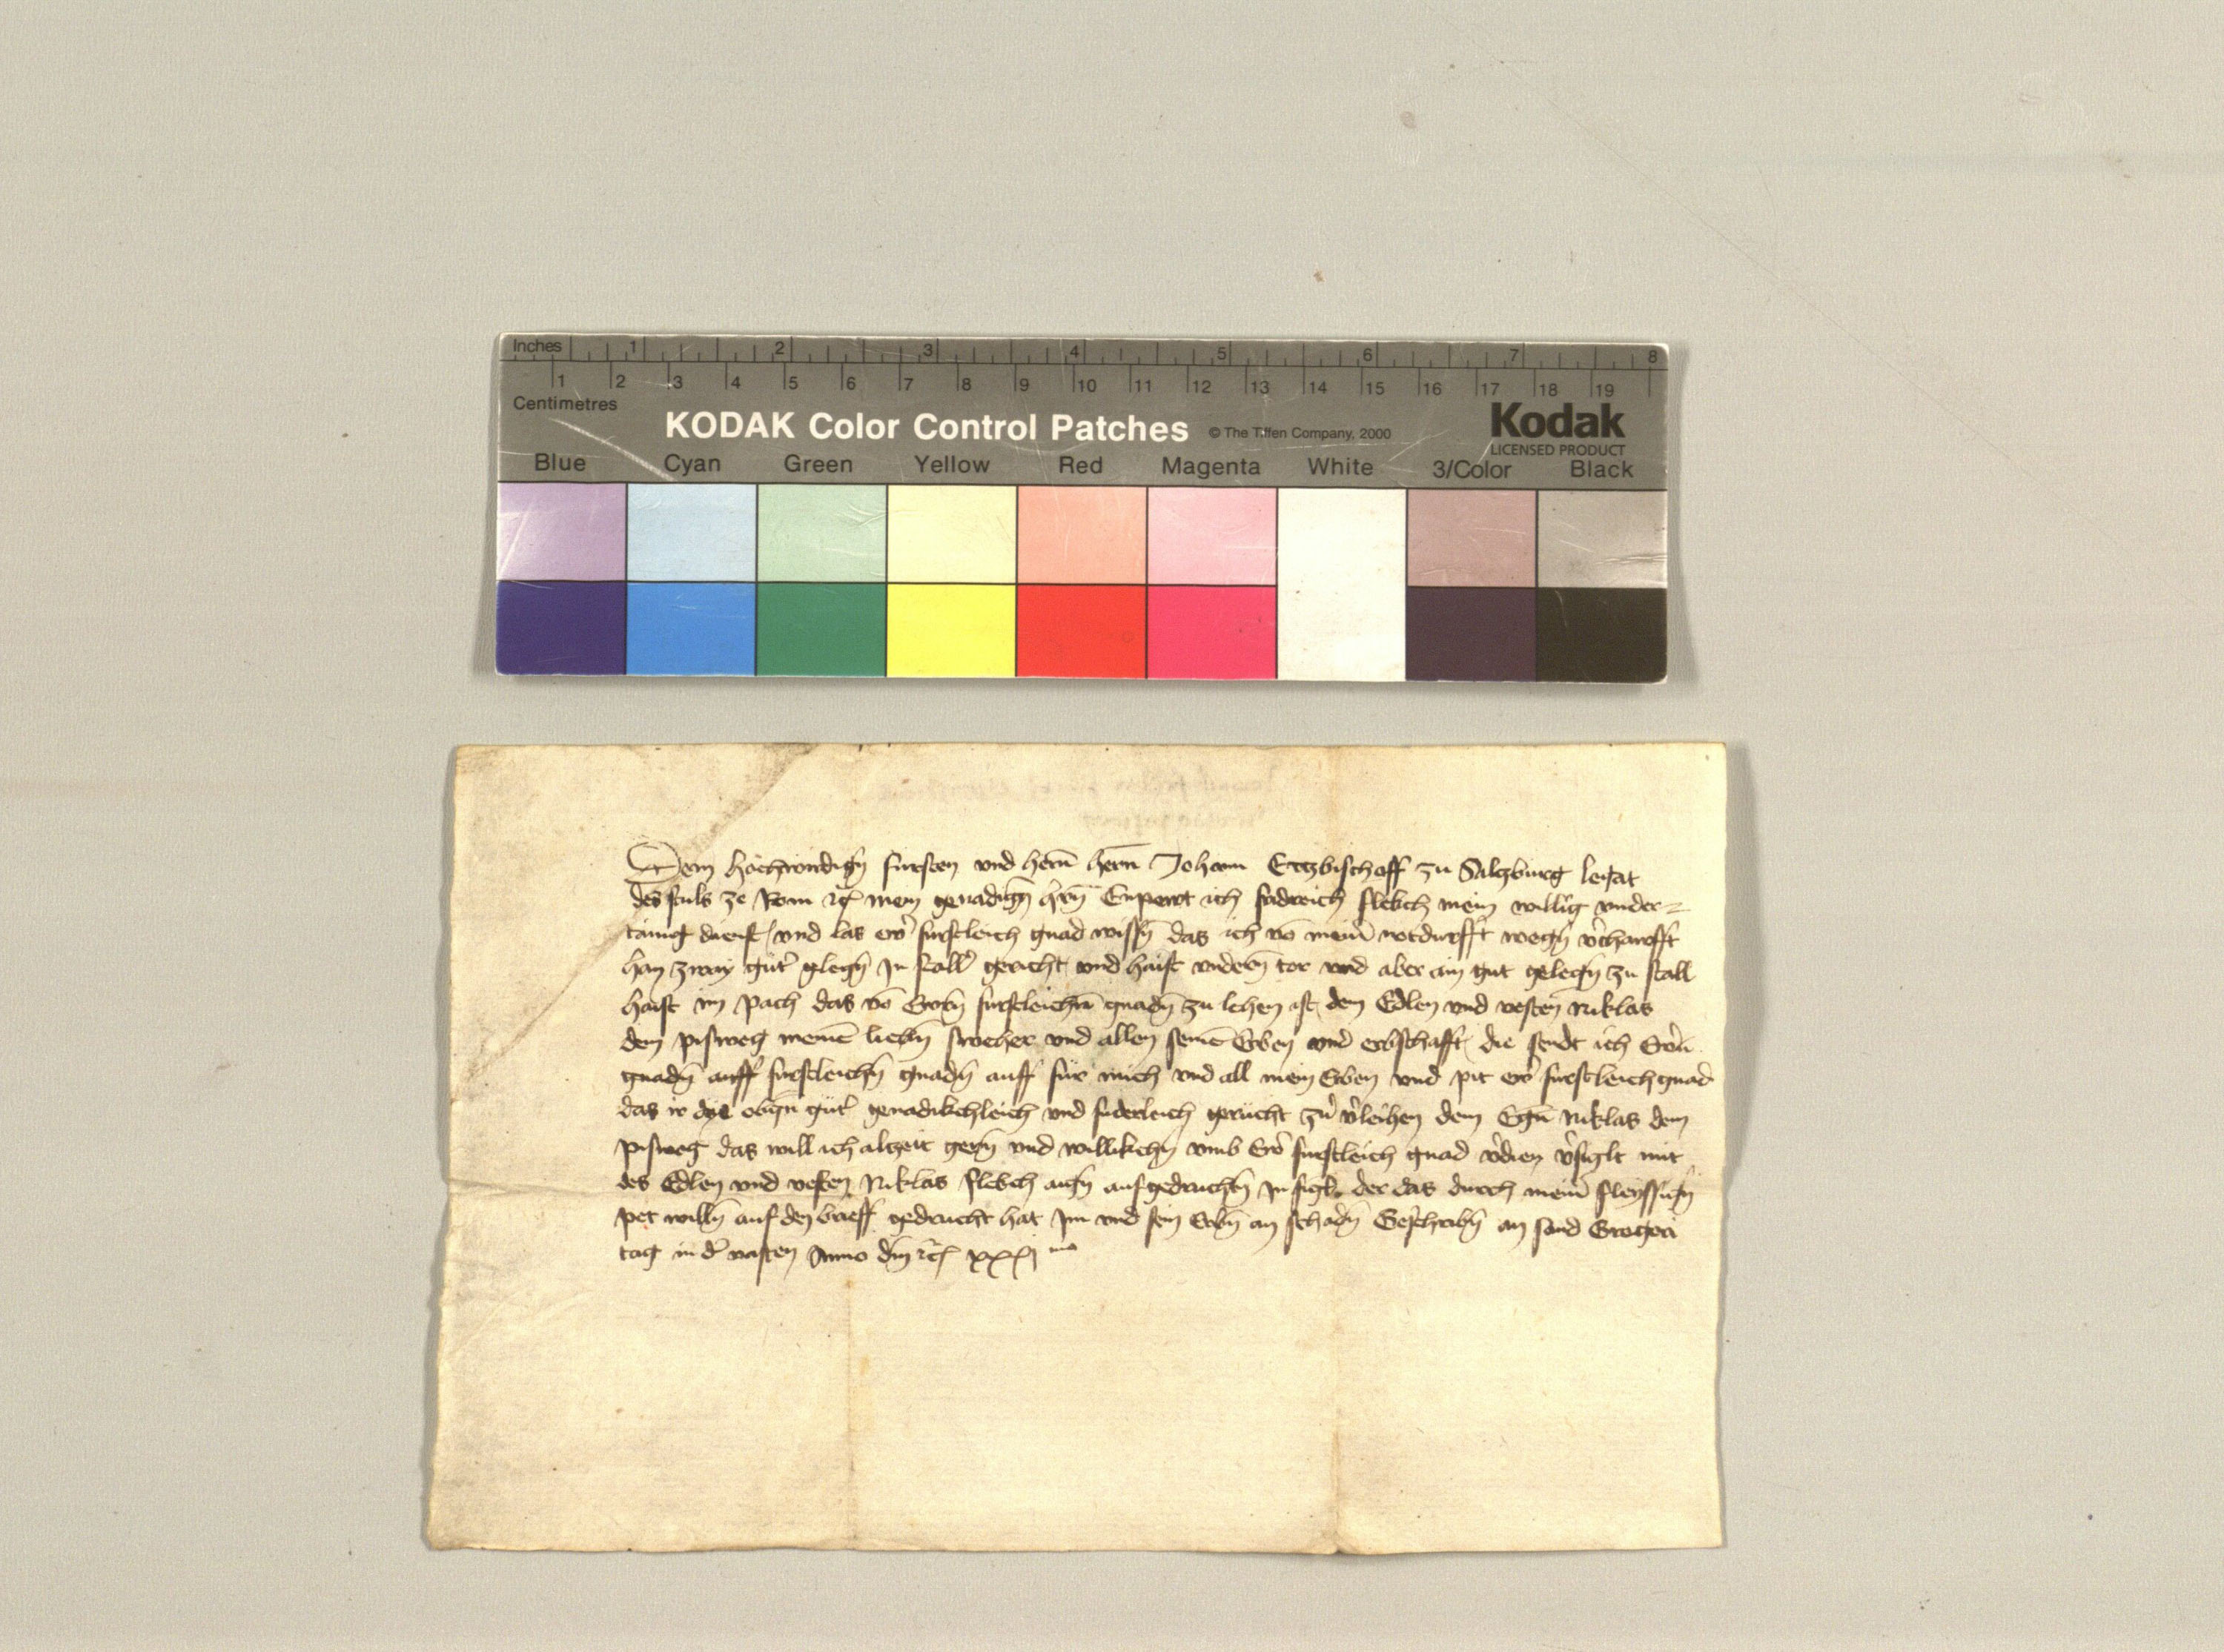 Inches 1 2 3 4 5 6 7 8
1 2 3 4 5 6 7 8 9 10 11 12 13 14 15 16 17 18 19
Centimetres
KODAK Color Control Patches © The Tiffen Company, 2000 Kodak
LICENSED PRODUCT
Blue Cyan Green Yellow Red Magenta White 3/Color Black
Dem hochwirdign̄ fursten vnd hern̄ hern̄ Johann Ertzbischoff zu Salczburg legat
des stuls ze Rom mein genadign̄ hern̄ Enpewt ich fridreich flebch mein willig vnder=
tanig dienst vnd las ewr̄ furstleich gnad wissn̄ das ich vō meinr̄ notdurfft wegn̄ v̄chaufft
han zway gut̄ glegn̄ In stall̄ gericht vnd haist vnderm̄ tor vnd aber ain gut gelegn̄ zu stall
haist im pach das vō Ewrn̄ furstleichn̄ gnadn̄ zu lehen ist dem Edlen vnd vesten Niklas
dem pisweg meinē liebn̄ sweher vnd allen seinē Erben vnd erbschafft die sendt ich Ewrn̄
gnadn̄ auff furstleichn̄ gnadn̄ auff für mich vnd all mein Erben vnd pit ewr̄ furstleich gnad
das ir dye obgn̄ güt̄ genadikchleich vnd fuderleich gerücht zu v̄leihen dem Egn̄ Niklas dem
pisweg das will ich alczeit gern̄ vnd willikchn̄ vmb Ewr̄ furstleich gnad v̄dien v̄siglt mit
des Edlen vnd vesten Niklas flebch aign̄ aufgedruchtn̄ Insigl der das durch meinr̄ fleyssign̄
pet willn̄ auf den brieff gedrucht hat Im vnd sein Erbn̄ an schadn̄ Geschrebn̄ an sand Gregori
tag in d̄ vasten Anno dm̄ xxxj mo